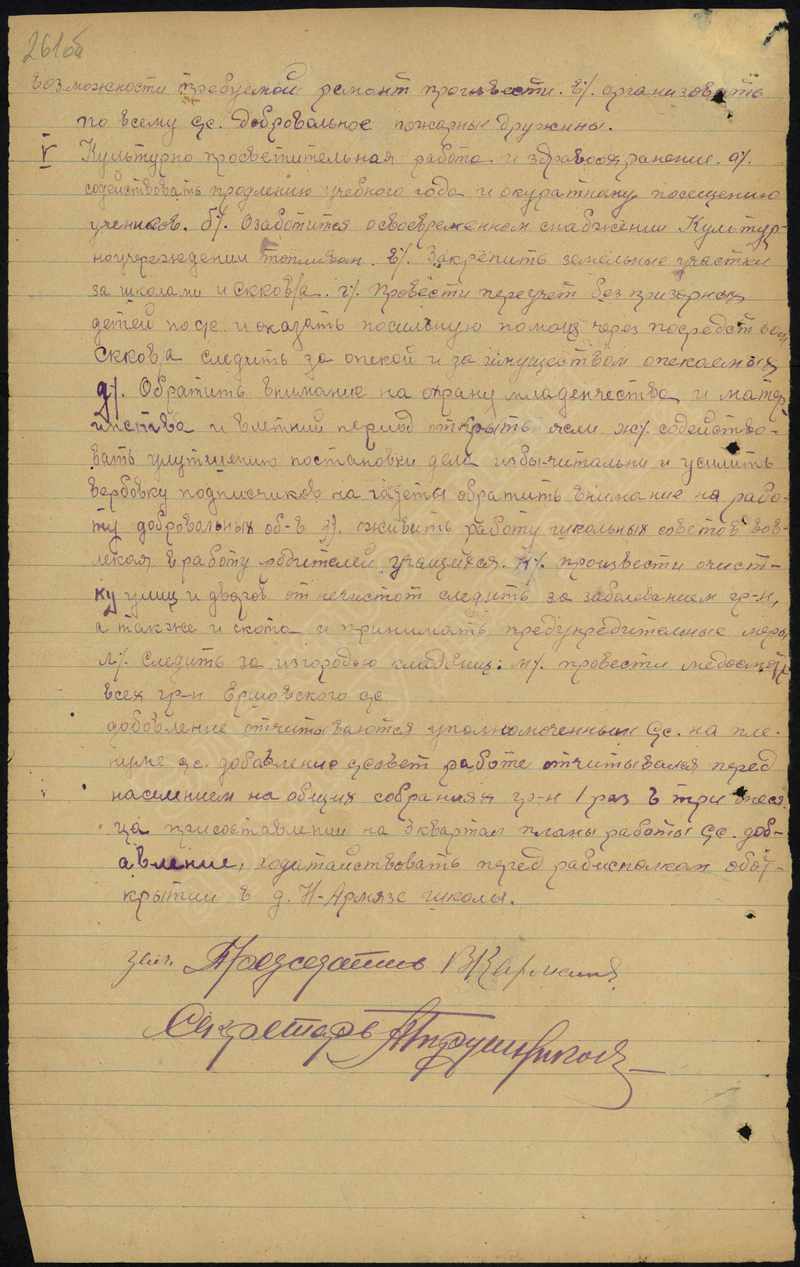 261об
возможности требуемой ремонт произвести. в/. организовать
по всему с/с. добровольное пожарные дружины.
V Культурно просветительная работа и здравоохранение. а/.
содействовать продлению учебного года и окуратному посещению
учеников. б/. Озаботится о своевременном снабжении Культур-
ноучереждении топливом. в/. Закрепить земельные участки
за школами и ККОВ/а. г/. Провести переучет безпризорных
детей по с/с. и оказать посильную помощь через посредством
ККОВ/а следить за опекой и за имуществом опекаемых
д/. Обратить внимание на охрану младенчества и матер-
инства и влетний период открыть ясли ж/. содейство-
вать улутшению постановки дела избычитальни и усилить
вербовку подписчиков на газеты обратить внимание на рабо-
ту добровольных об-в з/. оживить работу школьных советов вов-
лекая в работу родителей учащихся. к/. произвести очист-
ку улиц и дворов от нечистот следить за заболеванием гр-н,
а также и скота и принимать предупредительные меры
л/. Следить за изгородью кладбищ: м/. провести медосмотр
всех гр-н Ершовского с/с
добовление отчитываются уполномоченным с/с. на пле-
нуме с/с. добавление с/совет работе отчитывался перед
населением на общих собраниях гр-н 1 раз в три меся-
ца присоставлении на квартал планы работы с/с. доб-
авление, ходатайствовать перед райисполком обот-
крытии в д. Н-Армязе школы.
зам. Председатель
Секретарь